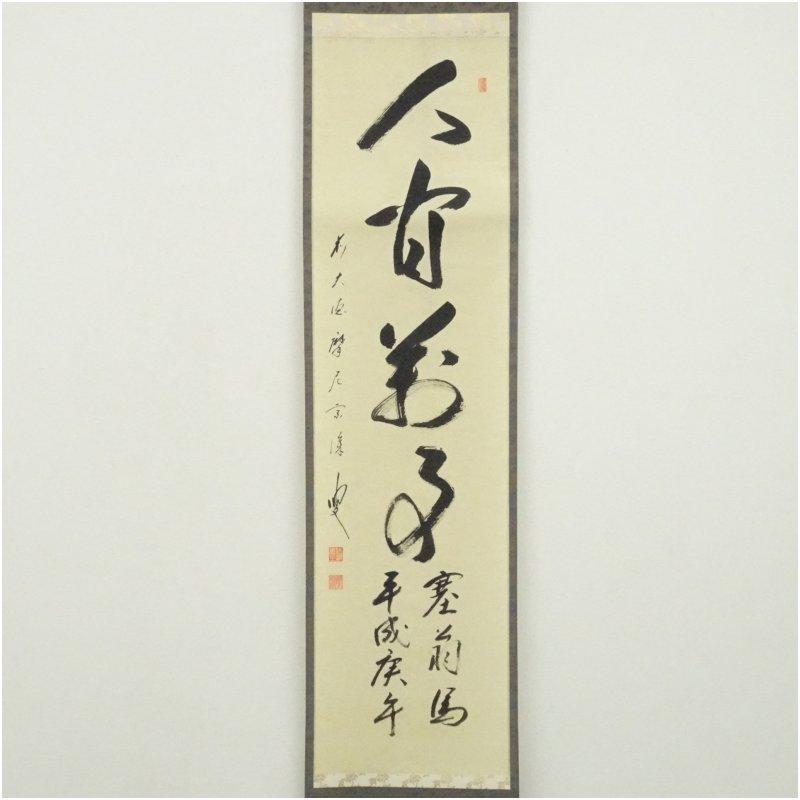 人間萬事
塞翁馬
平成庚午
前大徳摩尼宗